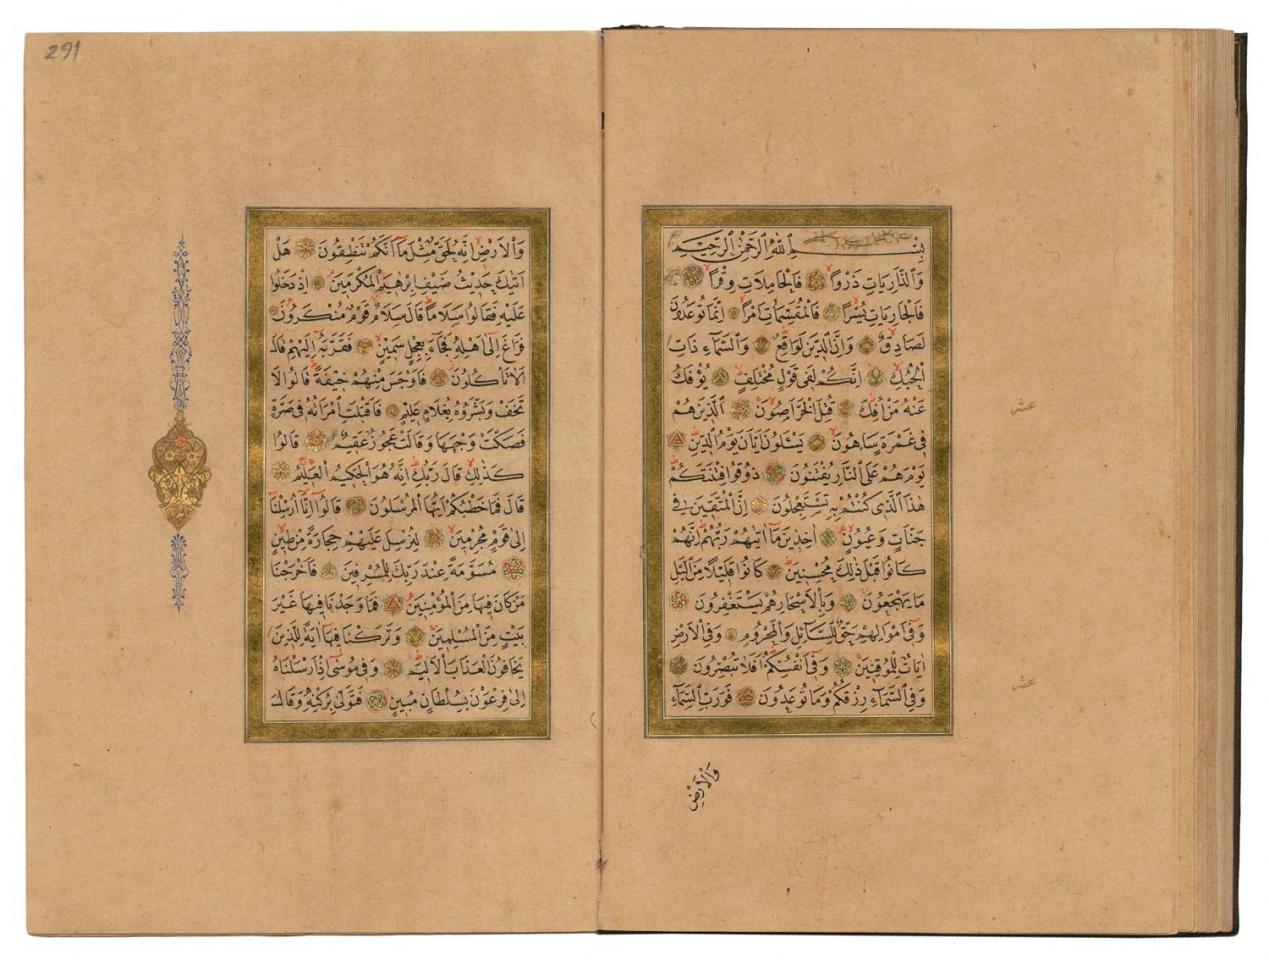 بِسْمِ اللهِ الرَّحْمٰنِ الرَّحِيمِ
وَالذَّارِيَاتِ ذَرْوًا فَالْحَامِلَاتِ وِقْرًا
فَالْجَارِيَاتِ يُسْرًا فَالْمُقَسِّمَاتِ اَمْرًا اِنَّمَا تُوعَدُونَ
لَصَادِقٌ وَاِنَّ الدّ۪ينَ لَوَاقِعٌ وَالسَّمَآءِ ذَاتِ
الْحُبُكِ اِنَّكُمْ لَفِي قَوْلٍ مُخْتَلِفٍ يُؤْفَكُ
عَنْهُ مَنْ اُفِكَ قُتِلَ الْخَرَّاصُونَ اَلَّذِينَ هُمْ
فِي غَمْرَةٍ سَاهُونَ يَسْئَلُونَ اَيَّانَ يَوْمُ الدِّينِ
يَوْمَ هُمْ عَلَى النَّارِ يُفْتَنُونَ ذُوقُوا فِتْنَتَكُمْ
هٰذَا الَّذِي كُنْتُمْ بِهِ تَسْتَعْجِلُونَ اِنَّ الْمُتَّقِينَ فِي
جَنَّاتٍ وَعُيُونٍ اٰخِذِينَ مَآ اٰتٰيهُمْ رَبُّهُمْ اِنَّهُمْ
كَانُوا قَبْلَ ذٰلِكَ مُحْسِنِينَ كَانُوا قَلِيلًا مِنَ الَّيْلِ
مَا يَهْجَعُونَ وَبِالْاَسْحَارِ هُمْ يَسْتَغْفِرُونَ
وَفِي اَمْوَالِهِمْ حَقٌّ لِلسَّآئِلِ وَالْمَحْرُومِ وَفِي الْاَرْضِ
اٰيَاتٌ لِلْمُوقِنِينَ وَفِي اَنْفُسِكُمْ اَفَلَا تُبْصِرُونَ
وَفِي السَّمَآءِ رِزْقُكُمْ وَمَا تُوعَدُونَ فَوَرَبِّ السَّمَآءِ
وَالْاَرْضِ
عشر
عشر
291
وَالْاَرْضِ اِنَّهُ لَحَقٌّ مِثْلَ مَآ اَنَّكُمْ تَنْطِقُونَ هَلْ
اَتٰيكَ حَدِيثُ ضَيْفِ اِبْرٰهِيمَ الْمُكْرَمِينَ اِذْ دَخَلُوا
عَلَيْهِ فَقَالُوا سَلَامًا قَالَ سَلَامٌ قَوْمٌ مُنْكَرُونَ
فَرَاغَ اِلٰٓى اَهْلِهِ فَجَآءَ بِعِجْلٍ سَمِينٍ فَقَرَّبَهُ اِلَيْهِمْ قَالَ
اَلَا تَأْكُلُونَ فَاَوْجَسَ مِنْهُمْ خِيفَةً قَالُوا لَا
تَخَفْ وَبَشَّرُوهُ بِغُلَامٍ عَلِيمٍ فَاَقْبَلَتِ امْرَاَتُهُ فِي صَرَّةٍ
فَصَكَّتْ وَجْهَهَا وَقَالَتْ عَجُوزٌ عَقِيمٌ قَالُوا
كَذٰلِكِ قَالَ رَبُّكِ اِنَّهُ هُوَ الْحَكِيمُ الْعَلِيمُ
قَالَ فَمَا خَطْبُكُمْ اَيُّهَا الْمُرْسَلُونَ قَالُوا اِنَّآ اُرْسِلْنَآ
اِلٰى قَوْمٍ مُجْرِمِينَ لِنُرْسِلَ عَلَيْهِمْ حِجَارَةً مِنْ طِينٍ
مُسَوَّمَةً عِنْدَ رَبِّكَ لِلْمُسْرِفِينَ فَاَخْرَجْنَا
مَنْ كَانَ فِيهَا مِنَ الْمُؤْمِنِينَ فَمَا وَجَدْنَا فِيهَا غَيْرَ
بَيْتٍ مِنَ الْمُسْلِمِينَ وَتَرَكْنَا فِيهَآ اٰيَةً لِلَّذِينَ
يَخَافُونَ الْعَذَابَ الْاَلِيمَ وَفِي مُوسٰٓى اِذْ اَرْسَلْنَاهُ
اِلٰى فِرْعَوْنَ بِسُلْطَانٍ مُبِينٍ فَتَوَلّٰى بِرُكْنِهِ وَقَالَ